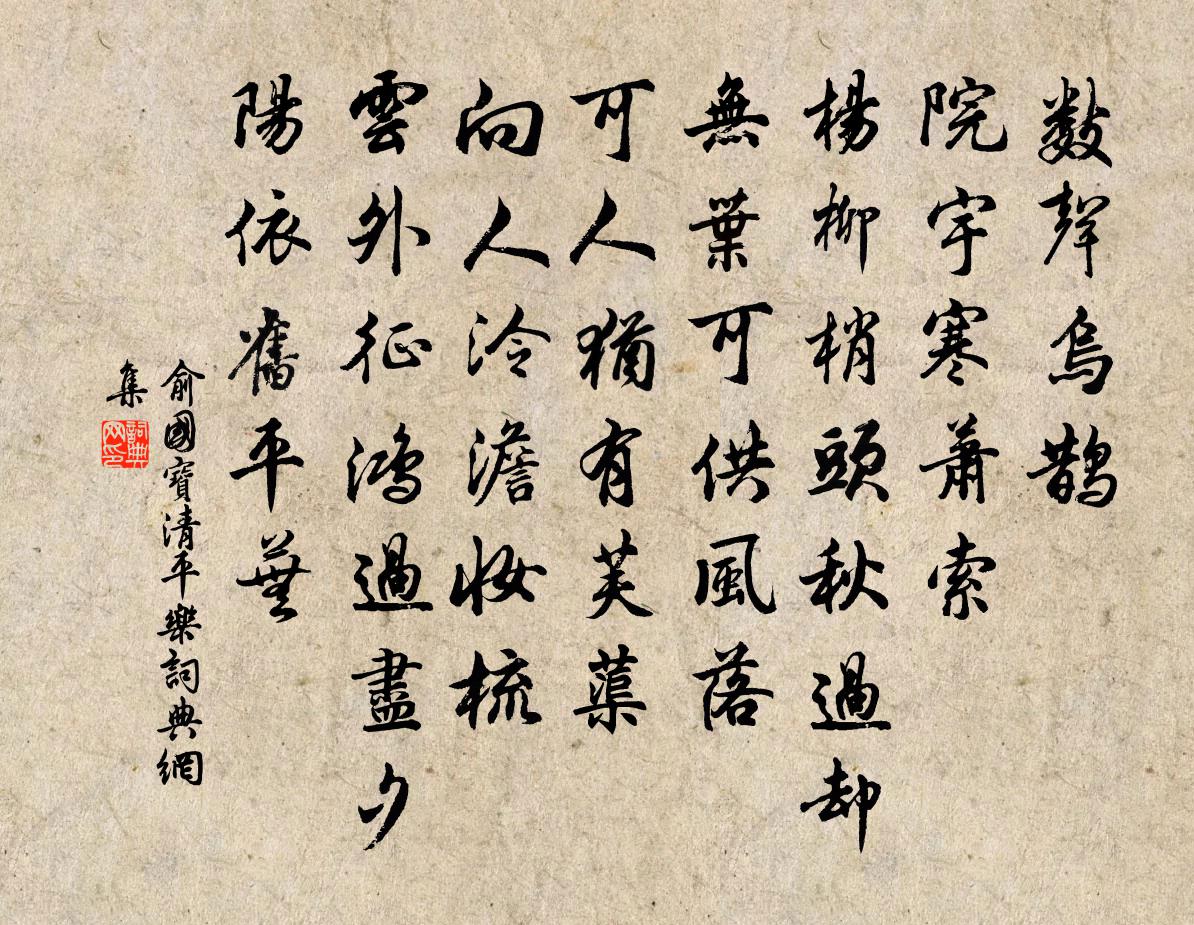 數聲烏鵲
院宇寒蕭索
楊柳梢頭秋過却
無葉可供風落
可人猶有芙蕖
向人泠澹妝梳
雲外征鴻過盡夕
陽依舊平蕪
俞國寶清平樂詞典網
集
詞典
网印